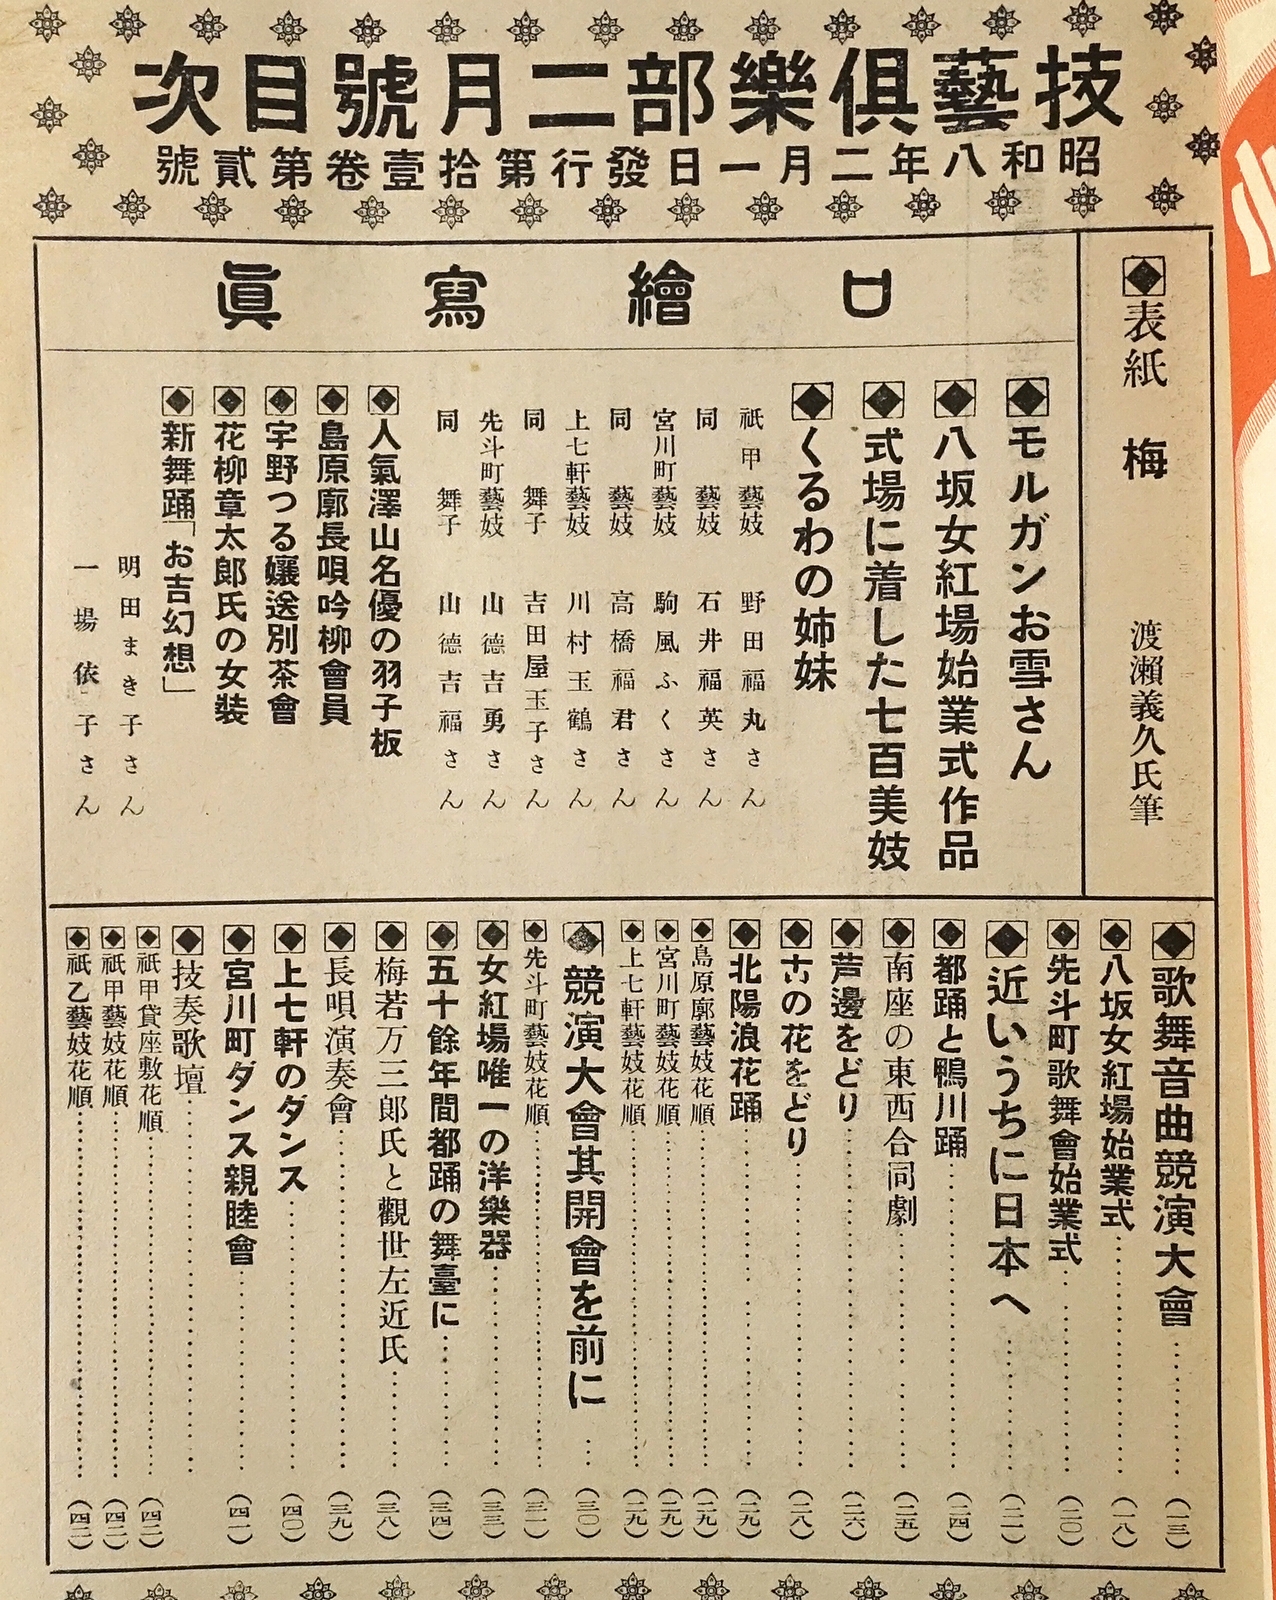 技藝俱樂部二月號目次
昭和八年二月一日發行第拾壹卷第貳號
◆表紙　梅　渡瀨義久氏筆
口繪寫眞
◆モルガンお雪さん
◆八坂女紅場始業式作品
◆式場に着した七百美妓
◆くるわの姉妹
祇甲藝妓　野田福丸さん
同　藝妓　石井福英さん
宮川町藝妓　駒風ふくさん
同　藝妓　高橋福君さん
上七軒藝妓　川村玉鶴さん
同　舞子　吉田屋玉子さん
先斗町藝妓　山德吉勇さん
同　舞子　山德吉福さん
◆人氣澤山名優の羽子板
◆島原廓長唄吟柳會員
◆宇野つる孃送別茶會
◆花柳章太郎氏の女裝
◆新舞踊「お吉幻想」
明田まき子さん
一場依子さん
◆歌舞音曲競演大會……（一三）
◆八坂女紅場始業式……（一八）
◆先斗町歌舞會始業式……（二〇）
◆近いうちに日本へ……（二一）
◆都踊と鴨川踊……（二四）
◆南座の東西合同劇……（二五）
◆芦邊をどり……（二六）
◆古の花をどり……（二八）
◆北陽浪花踊……（二九）
◆島原廓藝妓花順……（二九）
◆宮川町藝妓花順……（二九）
◆上七軒藝妓花順……（二九）
◆競演大會其開會を前に……（三〇）
◆先斗町藝妓花順……（三一）
◆女紅場唯一の洋樂器……（三三）
◆五十餘年間都踊の舞臺に……（三四）
◆梅若万三郎氏と觀世左近氏……（三八）
◆長唄演奏會……（三九）
◆上七軒のダンス……（四〇）
◆宮川町ダンス親睦會……（四一）
◆技奏歌壇……
◆祇甲貸座敷花順……（四二）
◆祇甲藝妓花順……（四二）
◆祇乙藝妓花順……（四二）